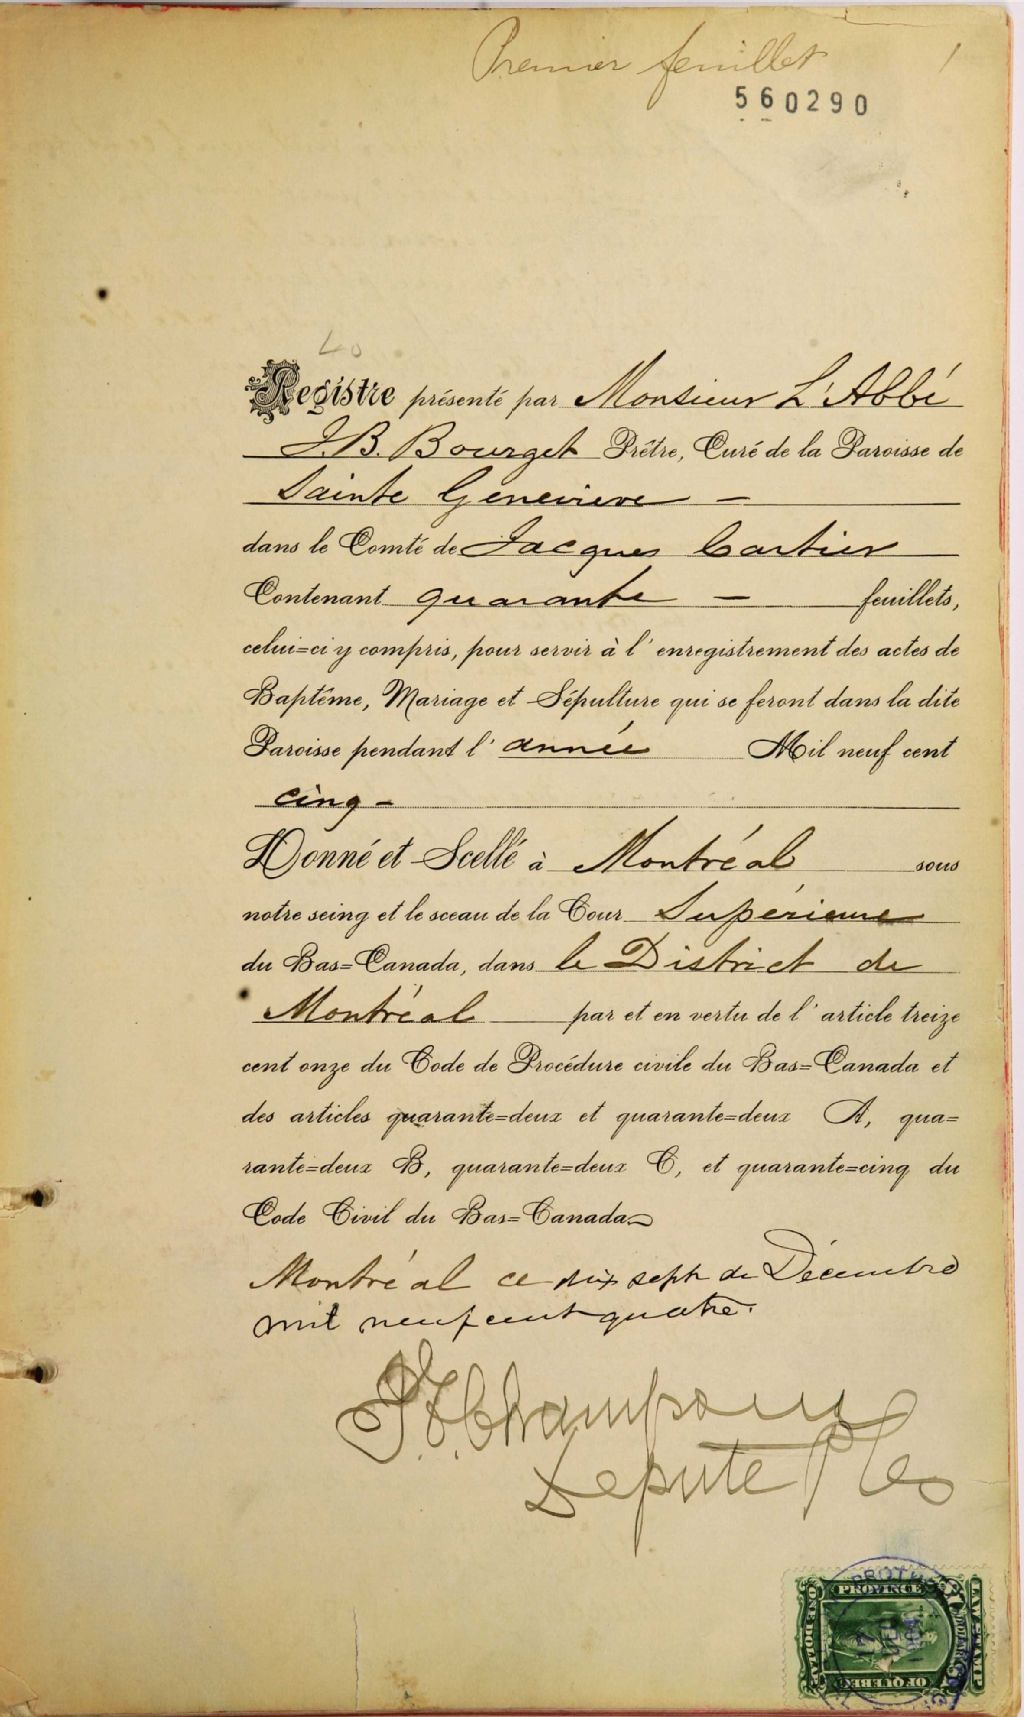 Premier feuillet 1
560290
Registre présenté par Monsieur L'Abbé
J.B. Bourget Prêtre, Curé de la Paroisse de
Sainte Genevieve –
dans le Comté de Jacques Cartier
Contenant quarante – feuillets,
celui=ci y compris, pour servir à l'enregistrement des actes de
Baptême, Mariage et Sépulture qui se feront dans la dite
Paroisse pendant l'année Mil neuf cent
cinq –
Donné et Scellé à Montréal sous
notre seing et le sceau de la Cour Supérieure
du Bas=Canada, dans le District de
Montréal par et en vertu de l'article treize
cent onze du Code de Procédure civile du Bas=Canada et
des articles quarante=deux et quarante=deux A, qua=
rante=deux B, quarante=deux C, et quarante=cinq du
Code Civil du Bas=Canada
Montréal ce dix sept de Décembre
mil neuf cent quatre.
Député
PROVINCE
OF QUEBEC
LAW STAMP
ONE DOLLAR